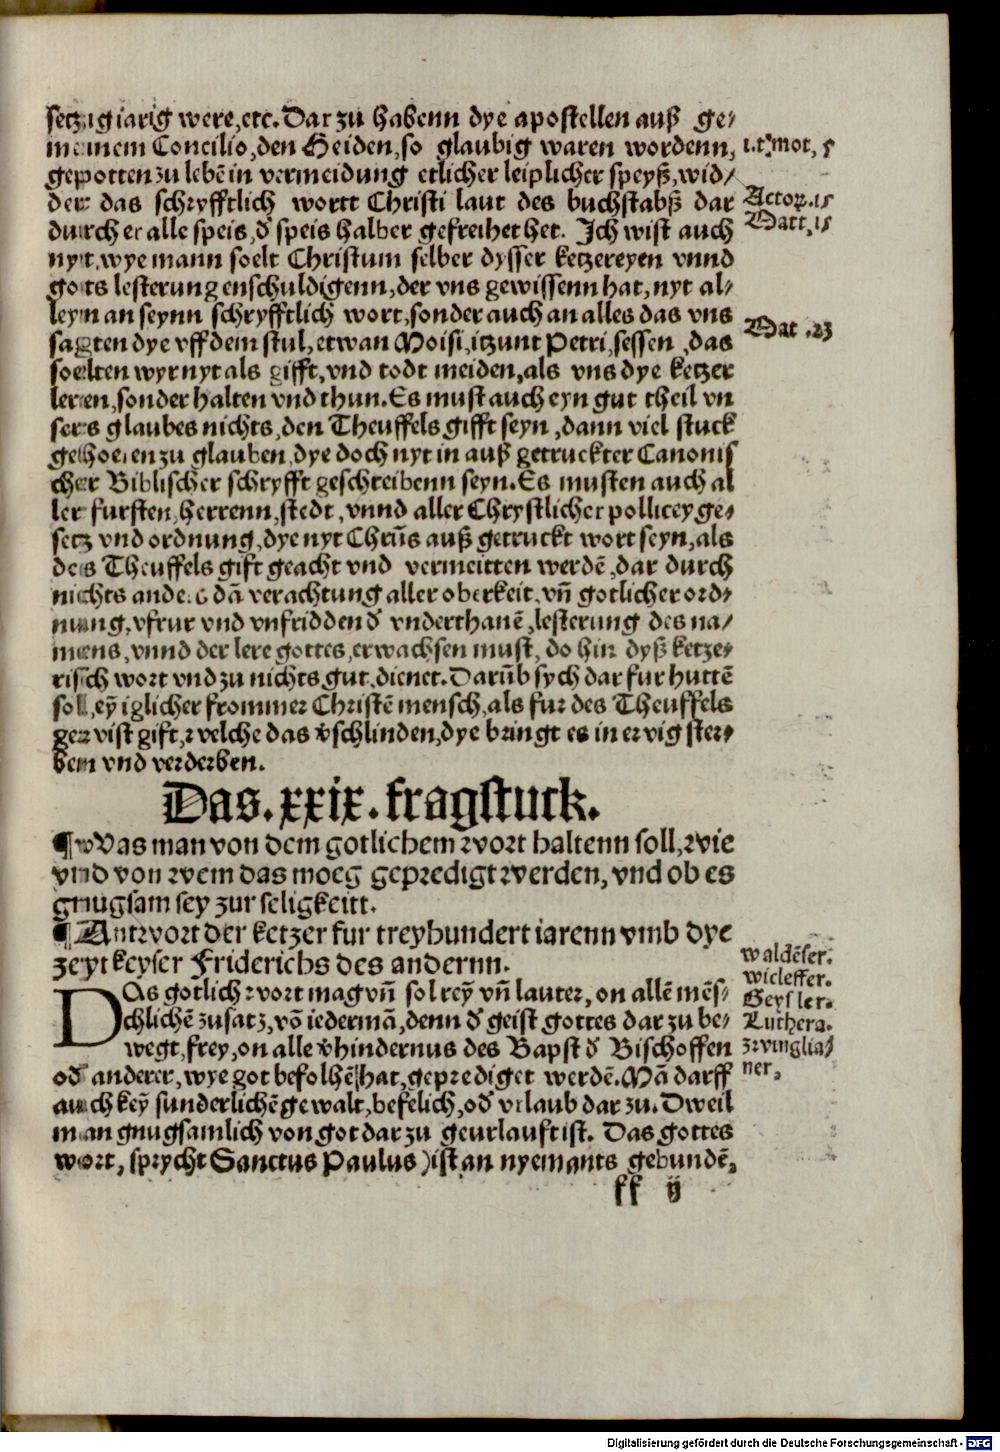 setzigiarig were, etc. Dar zu habenn dye apostellen auß ge⸗
meinem Concilio, den Heiden, so glaubig waren wordenn,
gepotten zu lebē in vermeidung etlicher leiplicher speyß, wid⸗
der das schryfftlich wortt Christi laut des buchstabß dar
durch er alle speis, ď speis halber gefreihet het. Ich wist auch
nyt, wye mann soelt Christum selber dysser ketzereyen vnnd
gots lesterung enschuldigenn, der vns gewissenn hat, nyt al⸗
leyn an seynn schryfftlich wort, sonder auch an alles das vns
sagten dye vff dem stul, etwan Moisi, itzunt Petri, sessen, das
soelten wyr nyt als gifft, vnd todt meiden, als vns dye ketzer
leren, sonder halten vnd thun. Es must auch eyn gut theil vn
sers glaubes nichts, den Theuffels gifft seyn, dann viel stuck
gehoeren zu glauben, dye doch nyt in auß getruckter Canonis
cher Biblischer schryfft geschreibenn seyn. Es musten auch al
ler fursten, herrenn, stedt, vnnd aller Chrystlicher pollicey ge⸗
setz vnd ordnung, dye nyt Chrūs auß getruckt wort seyn, als
des Theuffels gift geacht vnd vermeitten werdē, dar durch
nichts anders dā verachtung aller oberkeit, vñ gotlicher ord⸗
nung, vfrur vnd vnfridden ď vnderthanē, lesterung des na⸗
mens, vnnd der lere gottes, erwachsen must, do hin dyß ketze⸗
risch wort vnd zu nichts gut, dienet. Darūb sych dar fur huttē
sol, eȳ iglicher frommer Christē mensch, als fur des Theuffels
gewist gift, welche das v̄schlinden, dye bringt es in ewig ster⸗
ben vnd verderben.
Das. xxix. fragstuck.
¶ Was man von dem gotlichem wort haltenn soll, wie
vnd von wem das moeg gepredigt werden, vnd ob es
gnugsam sey zur seligkeitt.
¶ Antwort der ketzer fur treyhundert iarenn vmb dye
zeyt keyser Friderichs des andernn.
DAs gotlich wort mag vñ sol reȳ vñ lauter, on allē mēs⸗
chlichē zusatz, vō iedermā, denn ď geist gottes dar zu be⸗
wegt, frey, on alle v̄hindernus des Bapst ď Bischoffen
oď anderer, wye got befolhē hat, geprediget werdē. Mā darff
auch keȳ sunderlichē gewalt, befelich, oď vrlaub dar zu. Dweil
man gnugsamlich von got dar zu geurlauft ist. Das gottes
wort, sprycht Sanctus Paulus) ist an nyemants gebundē,
kk ij
1. timot, 5
Actor. 15
Matt, 15
Mat. 23
waldēser.
wicleffer.
Geysler.
Luthera.
zwinglia⸗
ner,
Digitalisierung gefördert durch die Deutsche Forschungsgemeinschaft - DFG